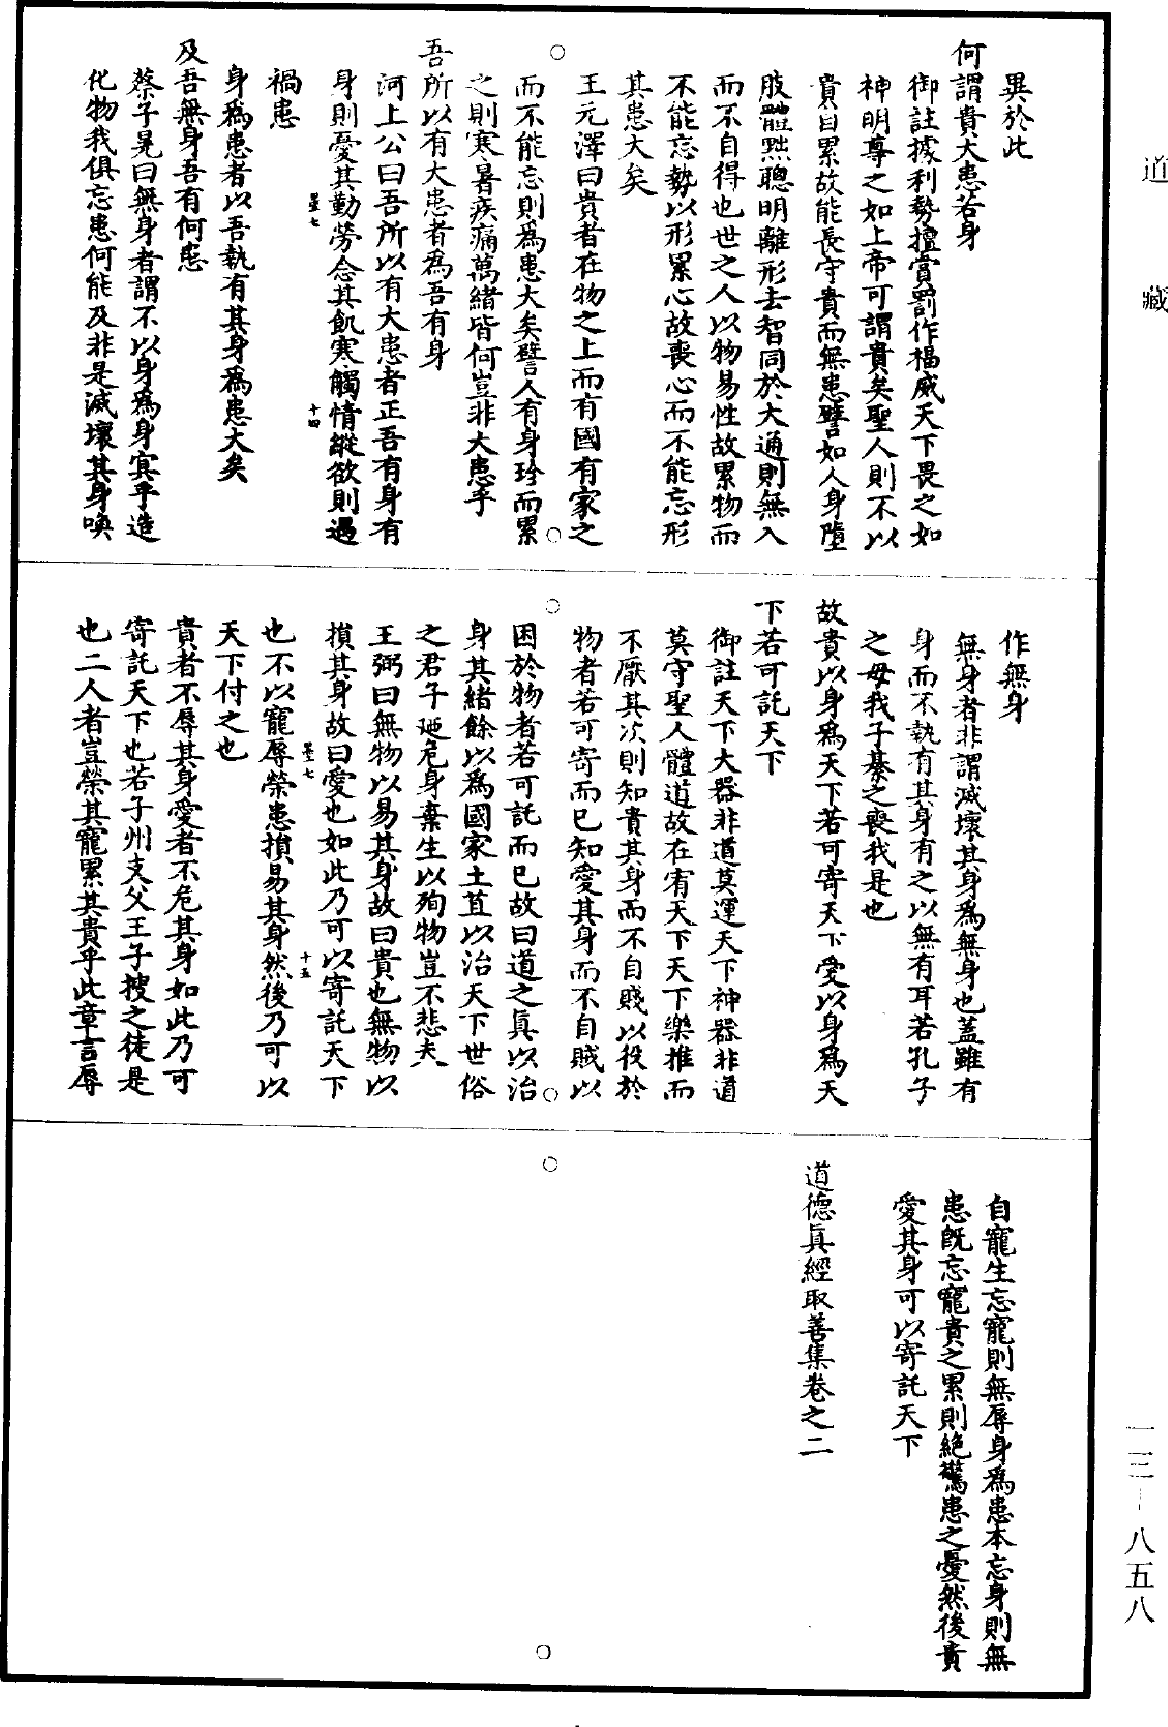 道藏
異於此
何謂貴大患若身
御註據利勢擅賞罰作福威天下畏之如
神明尊之如上帝可謂貴矣聖人則不以
貴自累故能長守貴而無患譬如人身墮
肢體黜聰明離形去智同於大通則無入
而不自得也世之人以物易性故累物而
不能忘勢以形累心故喪心而不能忘形
其患大矣
王元澤曰貴者在物之上而有國有家之
而不能忘則為患大矣譬人有身珍而累
之則寒暑疾痛萬緒皆何豈非大患乎
吾所以有大患者為吾有身
河上公曰吾所以有大患者正吾有身有
身則憂其勤勞念其飢寒觸情縱欲則遇
墨七 十四
禍患
身為患者以吾執有其身為患大矣
及吾無身吾有何患
蔡子晃曰無身者謂不以身為身冥乎造
化物我俱忘患何能及非是滅壞其身喚
作無身
無身者非謂滅壞其身為無身也蓋雖有
身而不執有其身有之以無有耳若孔子
之毋我子綦之喪我是也
故貴以身為天下若可寄天下愛以身為天
下若可託天下
御註天下大器非道莫運天下神器非道
莫守聖人體道故在宥天下天下樂推而
不厭其次則知貴其身而不自賤以役於
物者若可寄而已知愛其身而不自賊以
困於物者若可託而已故曰道之真以治
身其緒餘以為國家土苴以治天下世俗
之君子迺危身棄生以殉物豈不悲夫
王弼曰無物以易其身故曰貴也無物以
損其身故曰愛也如此乃可以寄託天下
墨七 十五
也不以寵辱榮患損易其身然後乃可以
天下付之也
貴者不辱其身愛者不危其身如此乃可
寄託天下也若子州支父王子搜之徒是
也二人者豈榮其寵累其貴乎此章言辱
自寵生忘寵則無辱身為患本忘身則無
患既忘寵貴之累則絕驚患之憂然後貴
愛其身可以寄託天下
道德真經取善集卷之二
一三－八五八